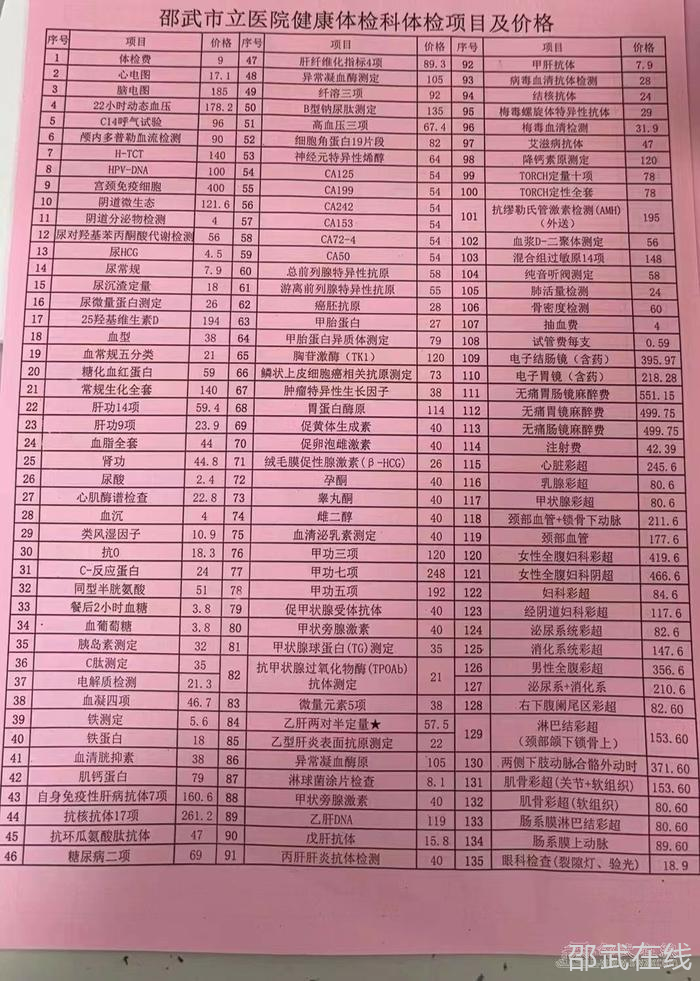 邵武市立医院健康体检科体检项目及价格
序号 项目 价格 序号 项目 价格 序号 项目 价格
1 体检费 9
2 心电图 17.1
3 脑电图 185
4 22小时动态血压 178.2
5 C14呼气试验 96
6 颅内多普勒血流检测 90
7 H-TCT 140
8 HPV-DNA 100
9 宫颈免疫细胞 400
10 阴道微生态 121.6
11 阴道分泌物检测 4
12 尿对羟基苯丙酮酸代谢检测 56
13 尿HCG 4.5
14 尿常规 7.9
15 尿沉渣定量 18
16 尿微量蛋白测定 26
17 25羟基维生素D 194
18 血型 38
19 血常规五分类 21
20 糖化血红蛋白 59
21 常规生化全套 140
22 肝功14项 59.4
23 肝功9项 23.9
24 血脂全套 44
25 肾功 44.8
26 尿酸 2.4
27 心肌酶谱检查 22.8
28 血沉 4
29 类风湿因子 10.9
30 抗O 18.3
31 C-反应蛋白 24
32 同型半胱氨酸 51
33 餐后2小时血糖 3.8
34 血葡萄糖 3.8
35 胰岛素测定 32
36 C肽测定 35
37 电解质检测 21.3
38 血凝四项 46.7
39 铁测定 5.6
40 铁蛋白 18
41 血清胱抑素 38
42 肌钙蛋白 79
43 自身免疫性肝病抗体7项 160.6
44 抗核抗体17项 261.2
45 抗环瓜氨酸肽抗体 47
46 糖尿病二项 69
47 肝纤维化指标4项 89.3
48 异常凝血酶测定 105
49 纤溶三项 92
50 B型钠尿肽测定 135
51 高血压三项 67.4
52 细胞角蛋白19片段 82
53 神经元特异性烯醇 64
54 CA125 54
55 CA199 54
56 CA242 54
57 CA153 54
58 CA72-4 54
59 CA50 54
60 总前列腺特异性抗原 58
61 游离前列腺特异性抗原 55
62 癌胚抗原 28
63 甲胎蛋白 27
64 甲胎蛋白异质体测定 79
65 胸苷激酶（TK1） 120
66 鳞状上皮细胞癌相关抗原测定 73
67 肿瘤特异性生长因子 38
68 胃蛋白酶原 114
69 促黄体生成素 40
70 促卵泡雌激素 40
71 绒毛膜促性腺激素(β-HCG) 26
72 孕酮 40
73 睾丸酮 40
74 雌二醇 40
75 血清泌乳素测定 40
76 甲功三项 120
77 甲功七项 248
78 甲功五项 192
79 促甲状腺受体抗体 40
80 甲状旁腺激素 40
81 甲状腺球蛋白(TG)测定 35
82 抗甲状腺过氧化物酶(TPOAb) 21
抗体测定
83 微量元素5项 38
84 乙肝两对半定量★ 57.5
85 乙型肝炎表面抗原测定 22
86 异常凝血酶原 105
87 淋球菌涂片检查 8.1
88 甲状旁腺激素 40
89 乙肝DNA 119
90 戊肝抗体 15.8
91 丙肝肝炎抗体检测 40
92 甲肝抗体 7.9
93 病毒血清抗体检测 28
94 结核抗体 24
95 梅毒螺旋体特异性抗体 29
96 梅毒血清检测 31.9
97 艾滋病抗体 47
98 降钙素原测定 120
99 TORCH定量十项 78
100 TORCH定性全套 78
101 抗缪勒氏管激素检测(AMH) 195
(外送)
102 血浆D-二聚体测定 56
103 混合组过敏原14项 148
104 纯音听阀测定 58
105 肺活量检测 24
106 骨密度检测 60
107 抽血费 4
108 试管费每支 0.59
109 电子结肠镜（含药） 395.97
110 电子胃镜（含药） 218.28
111 无痛胃肠镜麻醉费 551.15
112 无痛胃镜麻醉费 499.75
113 无痛肠镜麻醉费 499.75
114 注射费 42.39
115 心脏彩超 245.6
116 乳腺彩超 80.6
117 甲状腺彩超 80.6
118 颈部血管+锁骨下动脉 211.6
119 颈部血管 177.6
120 女性全腹妇科彩超 419.6
121 女性全腹妇科阴超 466.6
122 妇科彩超 84.6
123 经阴道妇科彩超 117.6
124 泌尿系统彩超 82.6
125 消化系统彩超 147.6
126 男性全腹彩超 356.6
127 泌尿系+消化系 210.6
128 右下腹阑尾区彩超 82.60
129 淋巴结彩超 153.60
（颈部颌下锁骨上）
130 两侧下肢动脉合髂外动时 371.60
131 肌骨彩超(关节+软组织) 153.60
132 肌骨彩超(软组织) 80.60
133 肠系膜淋巴结彩超 80.60
134 肠系膜上动脉 89.60
135 眼科检查(裂隙灯、验光) 18.9
邵武在线